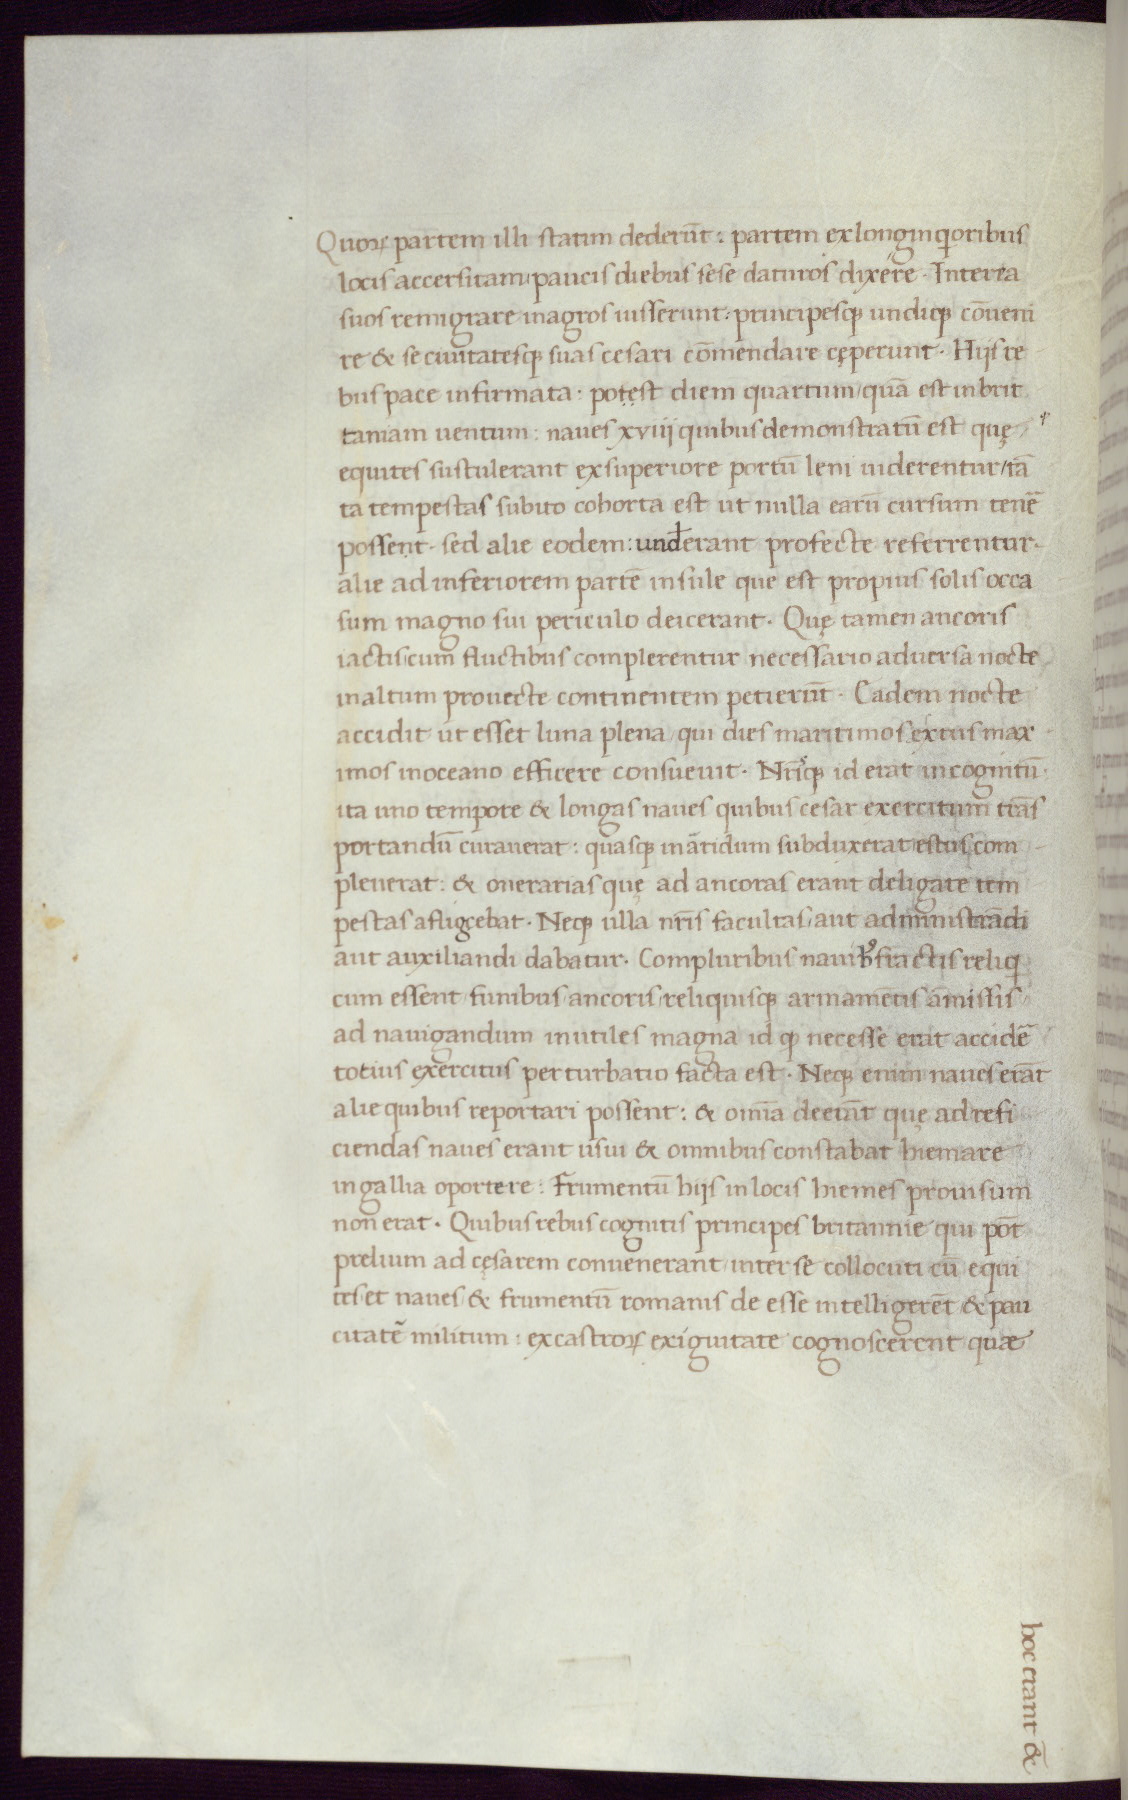 Quoꝝ partem illi statim dederūt : partem ex longinqioribus
locis accersitam paucis diebus sese daturos dixere · Interea
suos remigrare in agros iusserunt : principesqꝫ undiqꝫ cōveni
re & se civitatesqꝫ suas cesari cōmendare cęperunt · Hijs re
bus pace infirmata · potest diem quartum quā est in brit
taniam uentum : naues xviij quibus demonstratū est quę
equites sustulerant ex superiore portū leni uiderentur tā
ta tempestas subito cohorta est ut nulla earū cursum tenē
possent · sed alie eodem : unđ erant profecte referrentur ·
alie ad inferiorem partē insule que est propius solis occa
sum magno sui periculo deicerant · Quę tamen ancoris
iactis cum fluctibus complerentur necessario adversa nocte
in altum prouecte continentem petierūt · Eadem nocte
accidit ut esset luna plena qui dies maritimos extus max
imos in oceano efficere consueuit · Nr̄isqꝫ id erat incognitū ·
ita uno tempore & longas naues quibus cesar exercitum trās
portandū curauerat : quasqꝫ in āridum subduxerat estus com
pleuerat : & onerarias quę ad ancoras erant deligate tem
pestas afligebat · Neqꝫ ulla nr̄is facultas aut administrādi
aut auxiliandi dabatur · Compluribus nauibꝰ fractis reliq
cum essent funibus ancoris reliquisqꝫ armamētis amissis
ad nauigandum inutiles magna id qꝫ necesse erat accidē
totius exercitus perturbatio facta est · Neqꝫ enim naues erāt
alie quibus reportari possent : & omīa deerāt quę ad refi
ciendas naues erant usui & omnibus constabat hiemare
in gallia oportere : Frumentū hijs in locis hiemes prouisum
non erat · Quibus rebus cognitis principes britannie qui pōt
prelium ad cęsarem convenerant inter se collocuti cū equi
tes et naues & frumentū romanis de esse intelligerēt & pau
citatē militum : ex castroꝝ exiguitate cognoscerent quæ
hoc erant &